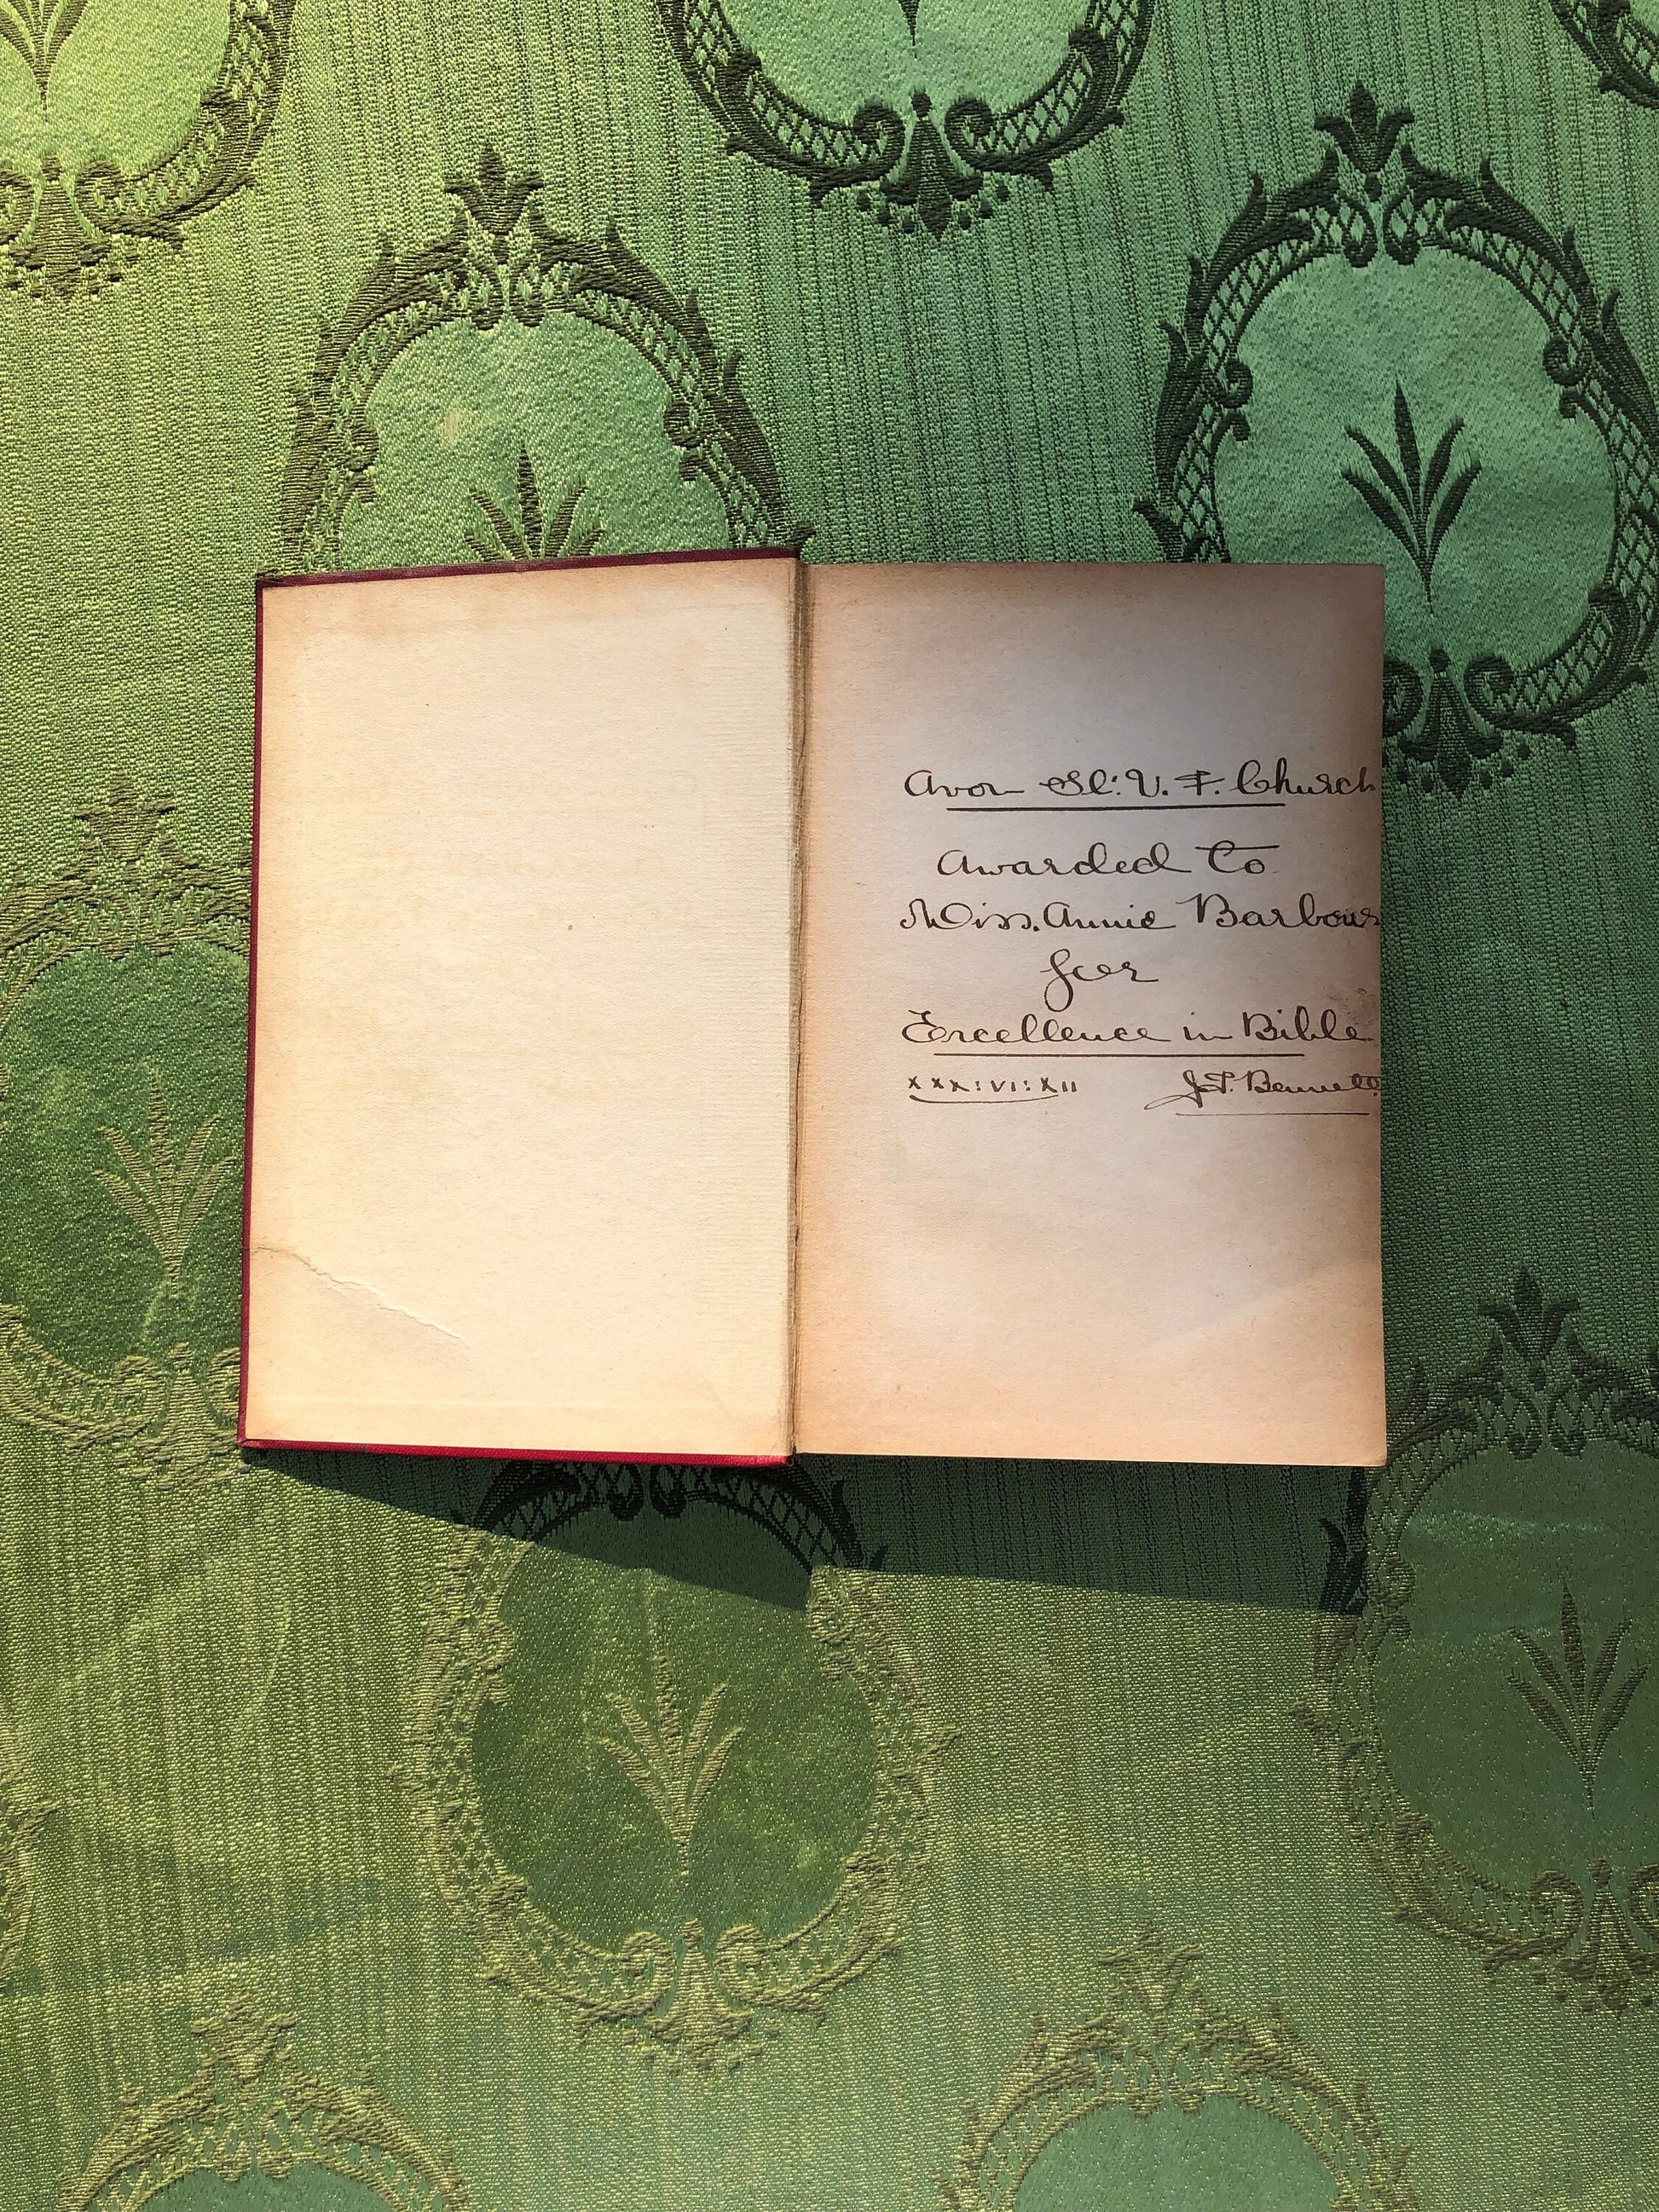 Avon St. U. F. Church
Awarded to
Miss. Annie Barbour
for
Excellence in Bible
XXX:VI:XII J. T. Bennett.